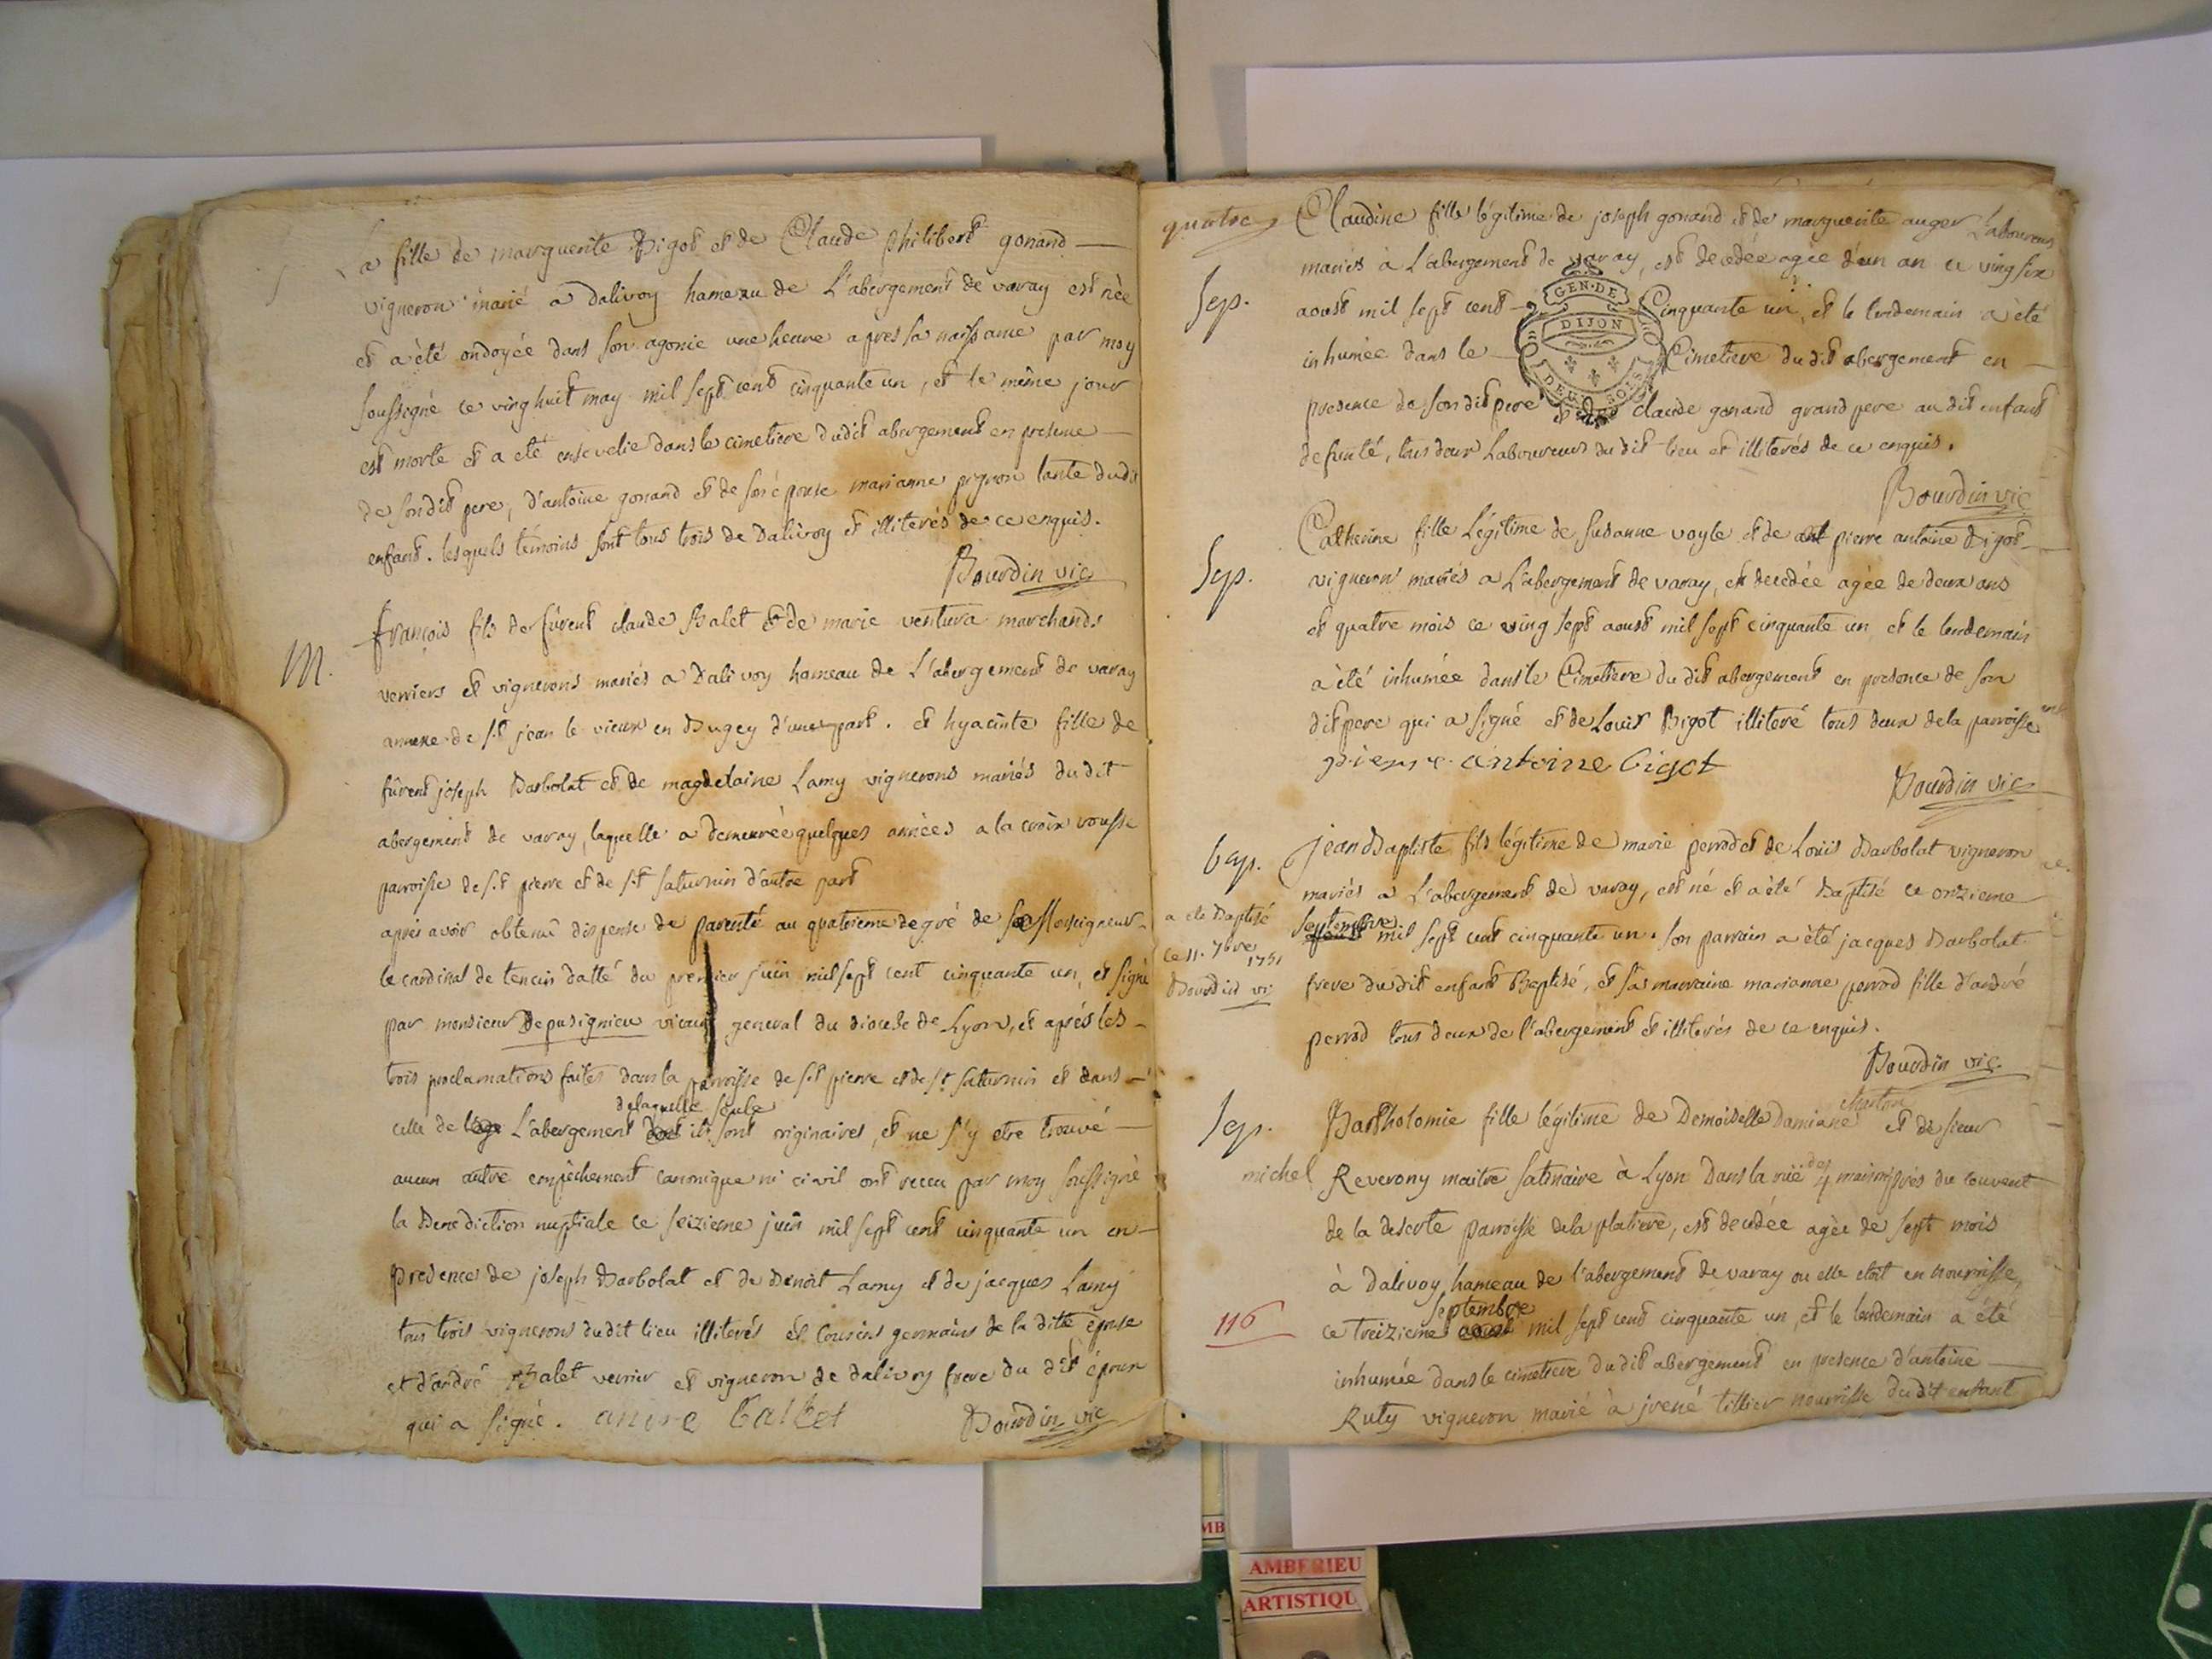 La fille de marguerite Bigot et de Claude philibert gonand
vigneron marié a dalivoy hameau de L'abergement de varay est née
et a été ondoyée dans son agonie une heure apres sa naissance par moy
soussigné ce vinghuit may mil sept cent cinquante un, et le même jour
est morte et a eté ensevelie dans le cimetiere dudit abergement en presence
de son dit pere, d'antoine gonand et de son épouse marianne pignon tante dudit
enfant. lesquels témoins sont tous trois de Dalivoy et illiterés de ce enquis.
Bourdin vic
M.
françois fils de fûrent claude Balet et de marie ventura marchands
verriers et vignerons mariés a Dalivoy hameau de L'abergement de varay
annexe de st jean le vieux en Bugey d'une part. et hyacinte fille de
fûrent joseph Barbolat et de magdelaine Lamy vignerons mariés du dit
abergement de varay, laquelle a demeurée quelques années a la croix rousse
parroisse de st pierre et de st saturnin d'autre part
après avoir obtenû dispense de parenté au quatrieme degré de Messeigneur
le cardinal de tencin datté du premier juin mil sept cent cinquante un, et signé
par monsieur Depusignieu vicaire general du diocese de Lyon, et aprés les
trois proclamations faites dans la parroisse de st pierre et de st saturnin et dans
delaquelle seule
celle de L'abergement ils sont originaires, et ne s'y etre trouvé
aucun autre empêchement canonique ni civil ont receu par moy soussigné
la Benediction nuptiale ce seizieme juin mil sept cent cinquante un en
presence de joseph Barbolat et de Benoit Lamy et de jacques Lamy
tous trois vignerons dudit lieu illiterés et Cousins germains de la ditte épouse
et d'andré Balet verrier et vigneron de dalivoy frere du dit époux
qui a signé. andre ballet Bourdin vic
quatre
Claudine fille légitime de joseph gonand et de marguerite auger Laboureurs
mariés à L'abergement de varay, est decedée agée d'un an ce vingsix
Sep.
GEN·DE
DIJON
aoust mil sept cent Cinquante un, et le lendemain a été
inhumée dans le Cimetiere du dit abergement en
presence de son dit pere et de claude gonand grand pere au dit enfant
defunté, tous deux Laboureurs du dit lieu et illiterés de ce enquis.
Bourdin vic
Sep.
Catherine fille Légitime de susanne voyle et de pierre antoine Bigot
vignerons mariés a L'abergement de varay, est decedée agée de deux ans
et quatre mois ce ving sept aoust mil sept cinquante un et le lendemain
a été inhumée dans le Cimetiere du dit abergement en presence de son
dit pere qui a signé et de Louis Bigot illiteré tous deux de la parroisse
pierre antoine bigot
Bourdin vic
bap.
Jean Baptiste fils légitime de marie perrod et de Louis Barbolat vigneron
mariés a L'abergement de varay, est né et a été Baptisé ce onzieme
a ete Baptisé
ce 11. 7bre
1751
Bourdin vi
septembre
mil sept cent cinquante un. son parrain a été jacques Barbolat
frere du dit enfant Baptisé, et sa marraine marianne perrod fille d'andré
perrod tous deux de l'abergement et illiterés de ce enquis.
Bourdin vic.
Sep.
Bartholomie fille légitime de Demoiselle Damiane et de sieur
michel Reverony maitre satinaire à Lyon Dans la rüe des 4 maisons près du couvent
de la deserte parroisse de la platiere, est decedée agée de sept mois
à dalivoy hameau de l'abergement de varay ou elle etoit en nourrisse,
septembre
ce treizieme mil sept cent cinquante un, et le lendemain a été
116
inhumée dans le cimetiere du dit abergement en presence d'antoine
Ruty vigneron marié à jrené tillier nourrisse du dit enfant
AMBERIEU
ARTISTIQU